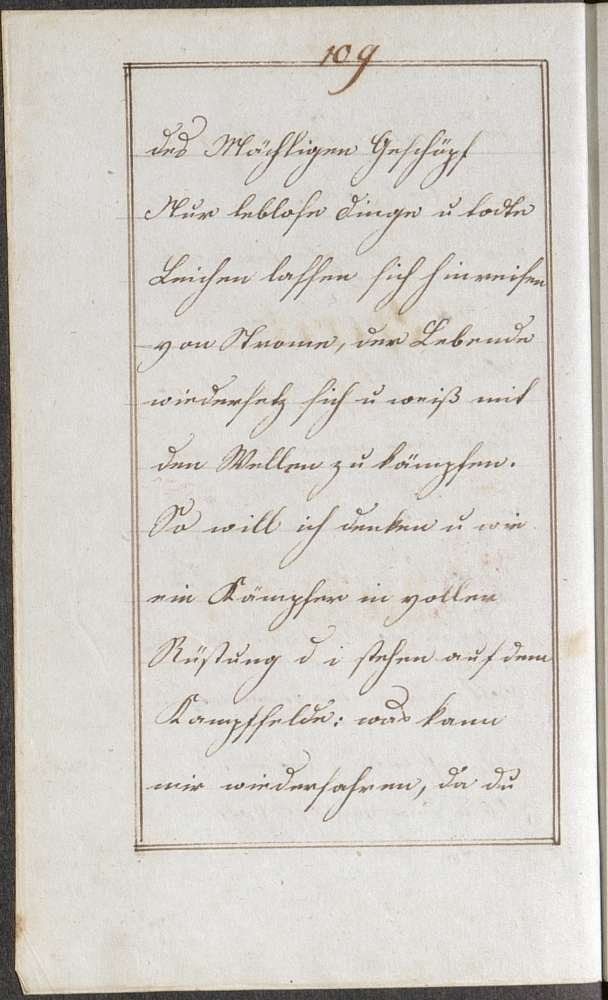 109
des Mächtigen Geschöpf
Nur leblose Dinge u todte
Leichen lassen sich hinreisen
von Strome, der Lebende
wiedersetz sich u weiß mit
den Wellen zu kämpfen.
So will ich denken u wie
ein Kämpfer in voller
Rüstung d i stehen auf dem
Kampffelde: was kann
mir wiederfahren, da du